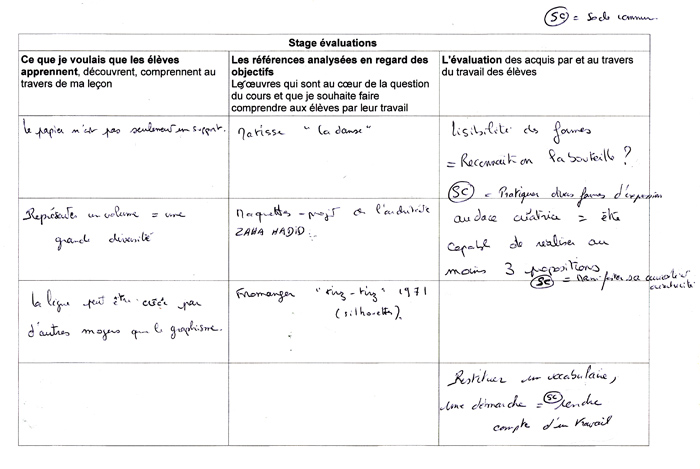 SC = Socle commun.
Stage évaluations
Ce que je voulais que les élèves
apprennent, découvrent, comprennent au
travers de ma leçon
Les références analysées en regard des
objectifs
Les œuvres qui sont au cœur de la question
du cours et que je souhaite faire
comprendre aux élèves par leur travail
L'évaluation des acquis par et au travers
du travail des élèves
le papier n'est pas seulement un support.
Matisse " la danse "
lisibilité des formes
= Reconnait-on la bouteille ?
SC = Pratiquer diverses formes d'expression
Représenter un volume = une
grande diversité
Maquettes - projet de l'architecte
ZAHA HADID
audace créatrice = être
capable de réaliser au
moins 3 propositions
SC = manifester sa
créativité
La ligne peut être créée par
d'autres moyens que le graphisme.
Fromanger 1971
(silhouettes)
Restituer un vocabulaire,
une démarche = SC rendre
compte d'un travail